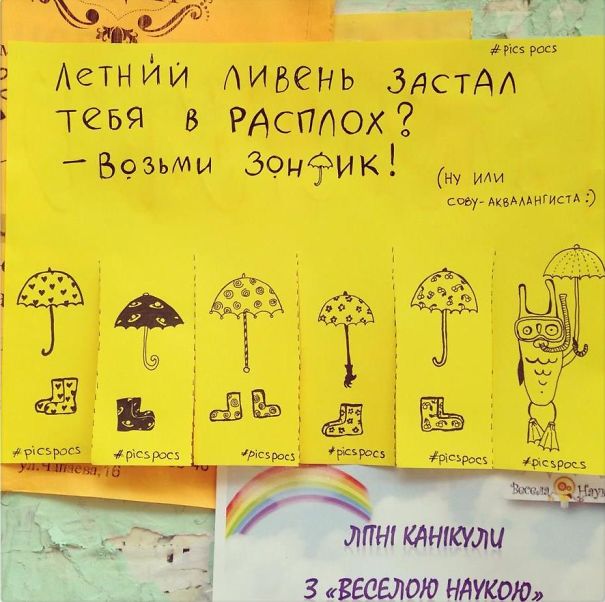 # pics pocs
Летний ливень застал
тебя в расплох?
– Возьми зонтик!
(ну или
сову-аквалангиста :)
#picspocs
#picspocs
#picspocs
#picspocs
#picspocs
#picspocs
ул.Чапаева,16
Весела Наук
ЛІТНІ КАНІКУЛИ
З «ВЕСЕЛОЮ НАУКОЮ»